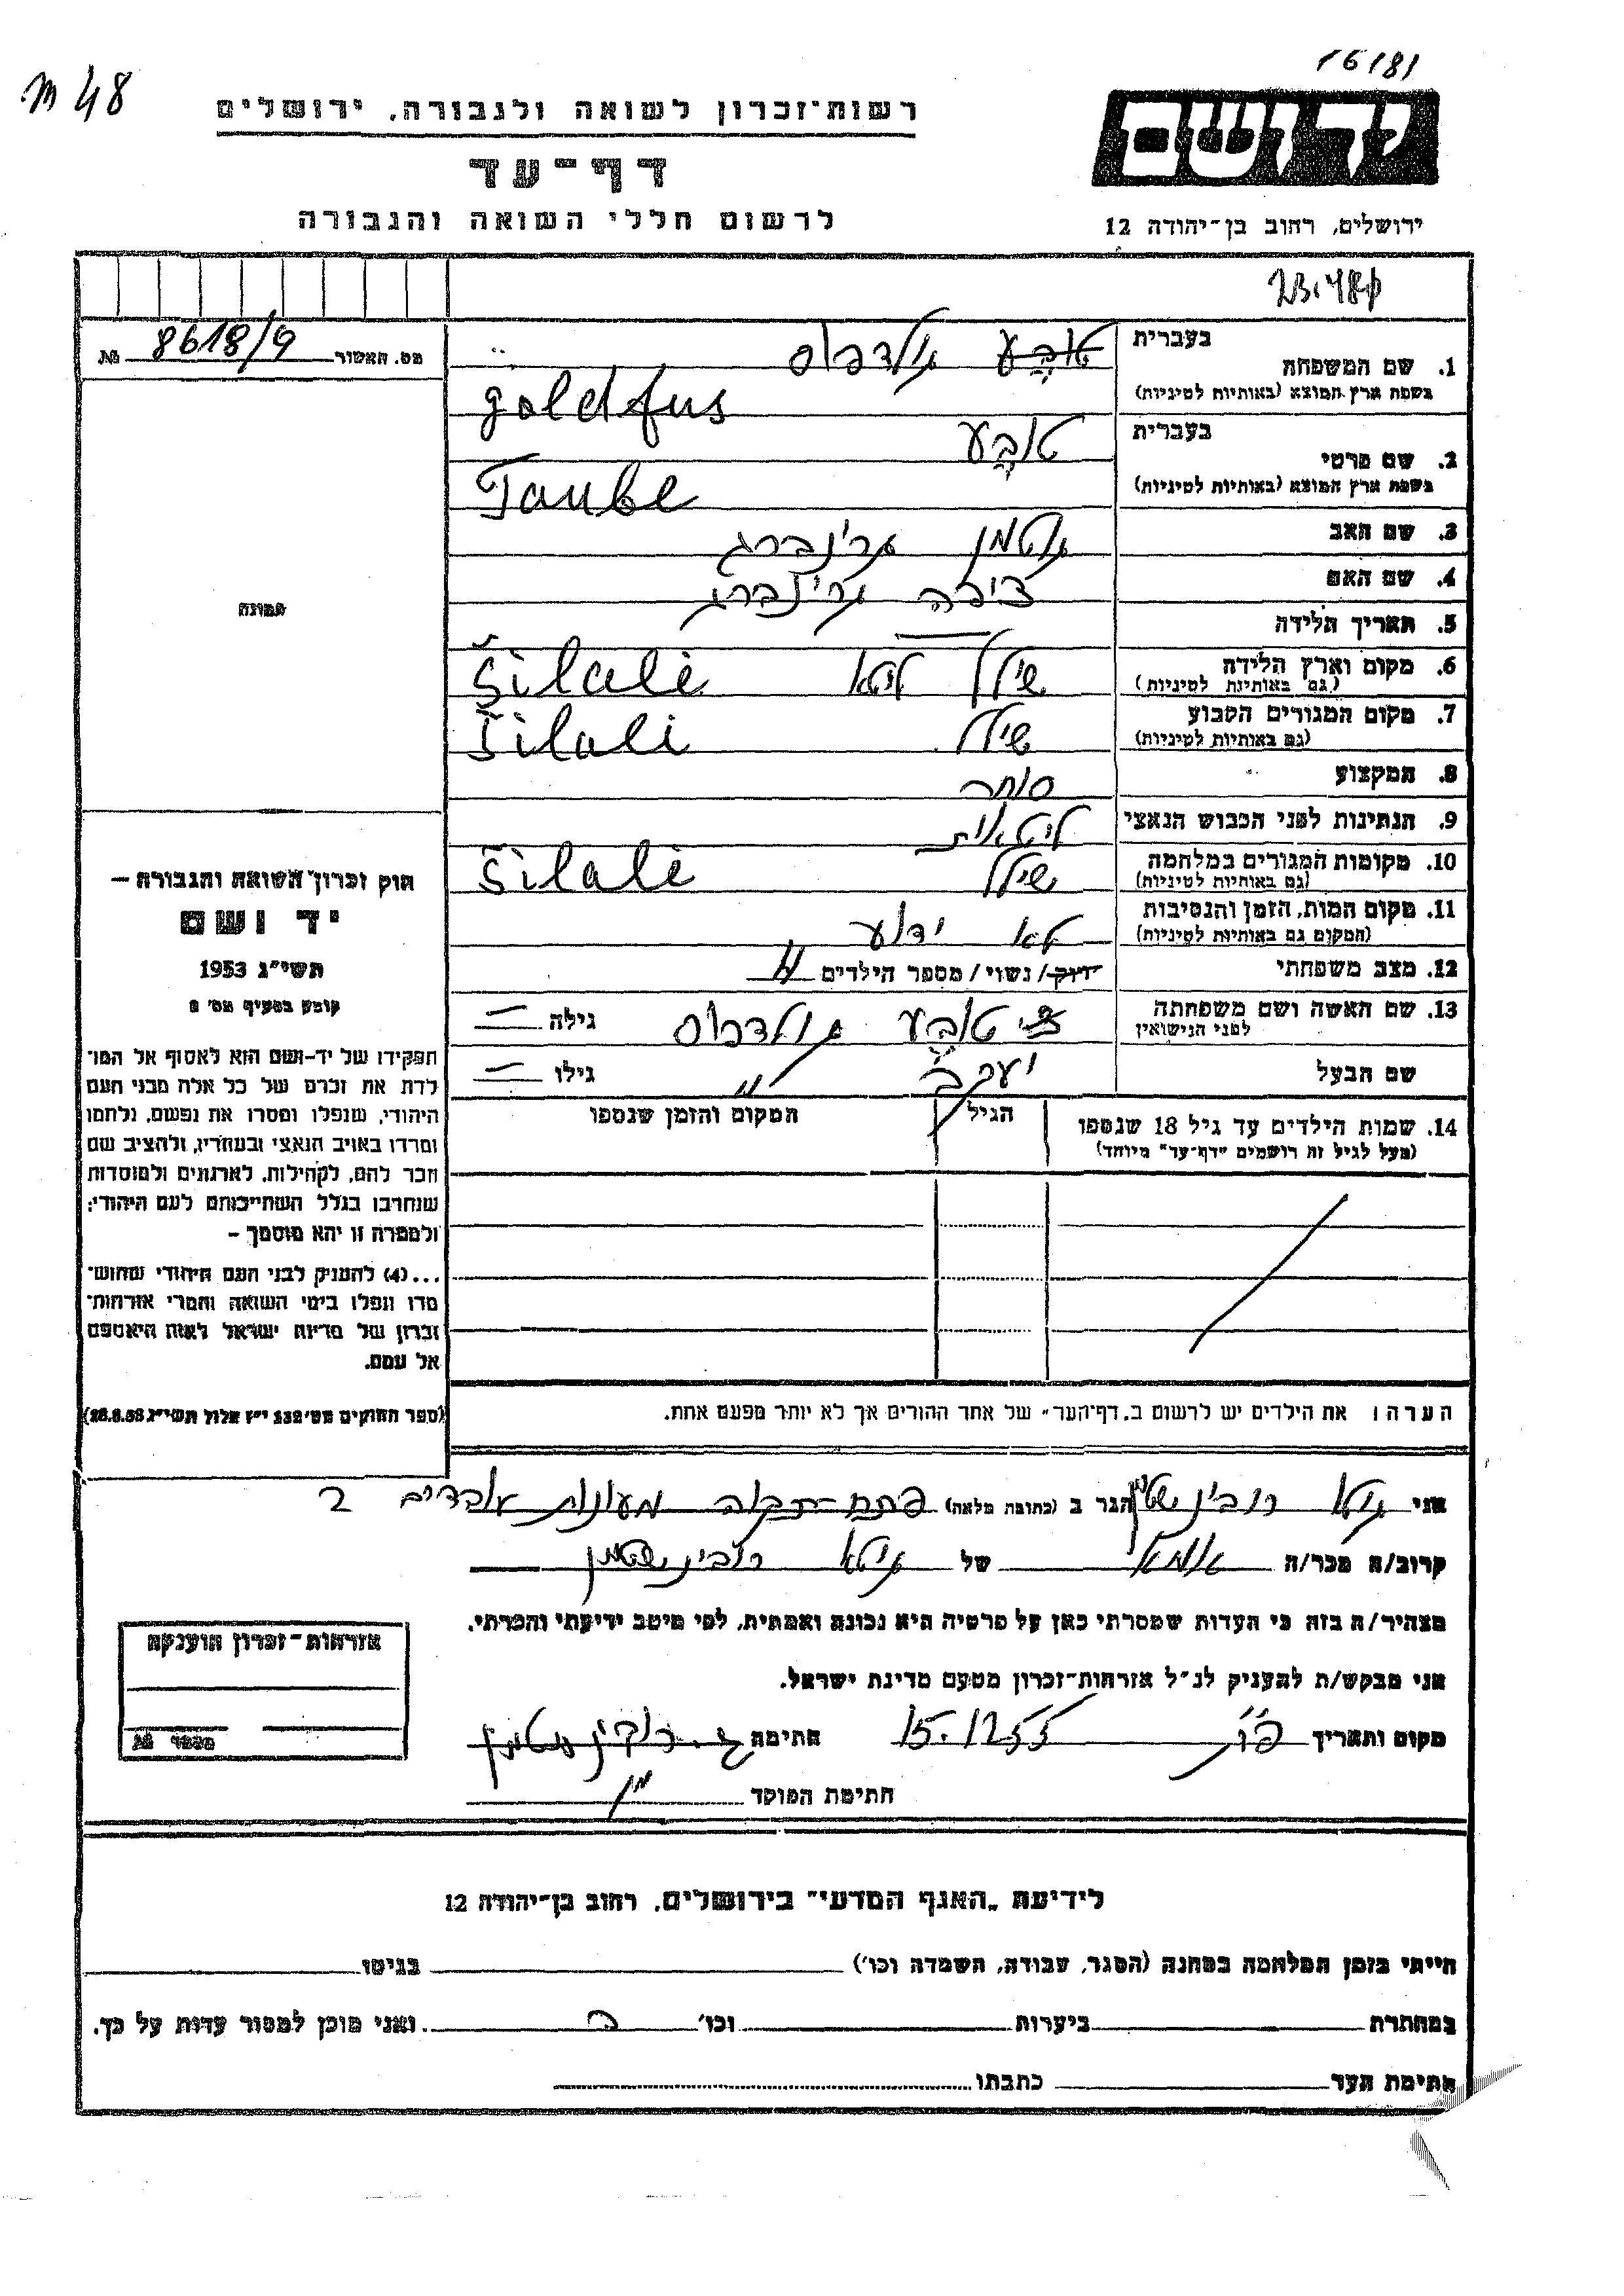 16181
m 48
רשות־זכרון לשואה ולגבורה, ירושלים
יד ושם
דף־עד
לרשום חללי השואה והגבורה
ירושלים, רחוב בן־יהודה 12
מס. האשור 8618/9 №
בעברית
1. שם המשפחה טובע גולדפוס
בשפת ארץ המוצא (באותיות לטיניות) goldfus
בעברית
2. שם פרטי טובע
בשפת ארץ המוצא (באותיות לטיניות) Taube
3. שם האב גרינברג
4. שם האם ציפה גרינברג
5. תאריך הלידה —
6. מקום וארץ הלידה שילל ליטא Šilali
(גם באותיות לטיניות)
7. מקום המגורים הקבוע שילל Šilali
(גם באותיות לטיניות)
8. המקצוע סוחר
9. הנתינות לפני הכבוש הנאצי ליטאית
10. מקומות המגורים במלחמה שילל Šilali
(גם באותיות לטיניות)
11. מקום המות, הזמן והנסיבות לא ידוע
(המקום גם באותיות לטיניות)
12. מצב משפחתי רווק/ נשוי/ מספר הילדים 4
13. שם האשה ושם משפחתה טובע גולדפוס גילה —
לפני הנישואין
שם הבעל יעקב " גילו —
14. שמות הילדים עד גיל 18 שנספו הגיל המקום והזמן שנספו
(מעל לגיל זה רושמים "דף־עד" מיוחד)
הערה: את הילדים יש לרשום ב"דף־העד" של אחד ההורים אך לא יותר מפעם אחת.
תמונה
חוק זכרון השואה והגבורה —
יד ושם
תשי"ג 1953
קובע בסעיף מס' 2
תפקידו של יד-ושם הוא לאסוף אל המו־
לדת את זכרם של כל אלה מבני העם
היהודי, שנפלו ומסרו את נפשם, נלחמו
ומרדו באויב הנאצי ובעוזריו, ולהציב שם
וזכר להם, לקהילות, לארגונים ולמוסדות
שנחרבו בגלל השתייכותם לעם היהודי;
ולמטרה זו יהא מוסמך —
...(4) להעניק לבני העם היהודי שהוש־
מדו ונפלו בימי השואה והמרי אזרחות־
זכרון של מדינת ישראל לאות היאספם
אל עמם.
(ספר החוקים מס' 132 י"ז אלול תשי"ג 28.8.53)
אני גיטא רובינשטין הגר ב (כתובת מלאה) פתח-תקוה מעונות עובדים ב
קרוב/ה מכר/ה אמא של גיטא רובינשטין
מצהיר/ה בזה כי העדות שמסרתי כאן על פרטיה היא נכונה ואמתית, לפי מיטב ידיעתי והכרתי.
אני מבקש/ת להעניק לנ"ל אזרחות־זכרון מטעם מדינת ישראל.
מקום ותאריך פ"ת 15.12.55 חתימה ג. רובינשטין
חתימת הפוקד
אזרחות־זכרון הוענקה
מספר №
לידיעת "האגף המדעי" בירושלים, רחוב בן־יהודה 12
הייתי בזמן המלחמה במחנה (הסגר, עבודה, השמדה וכו') בגיטו
במחתרת ביערות וכו' ואני מוכן למסור עדות על כך.
חתימת העד כתבתו